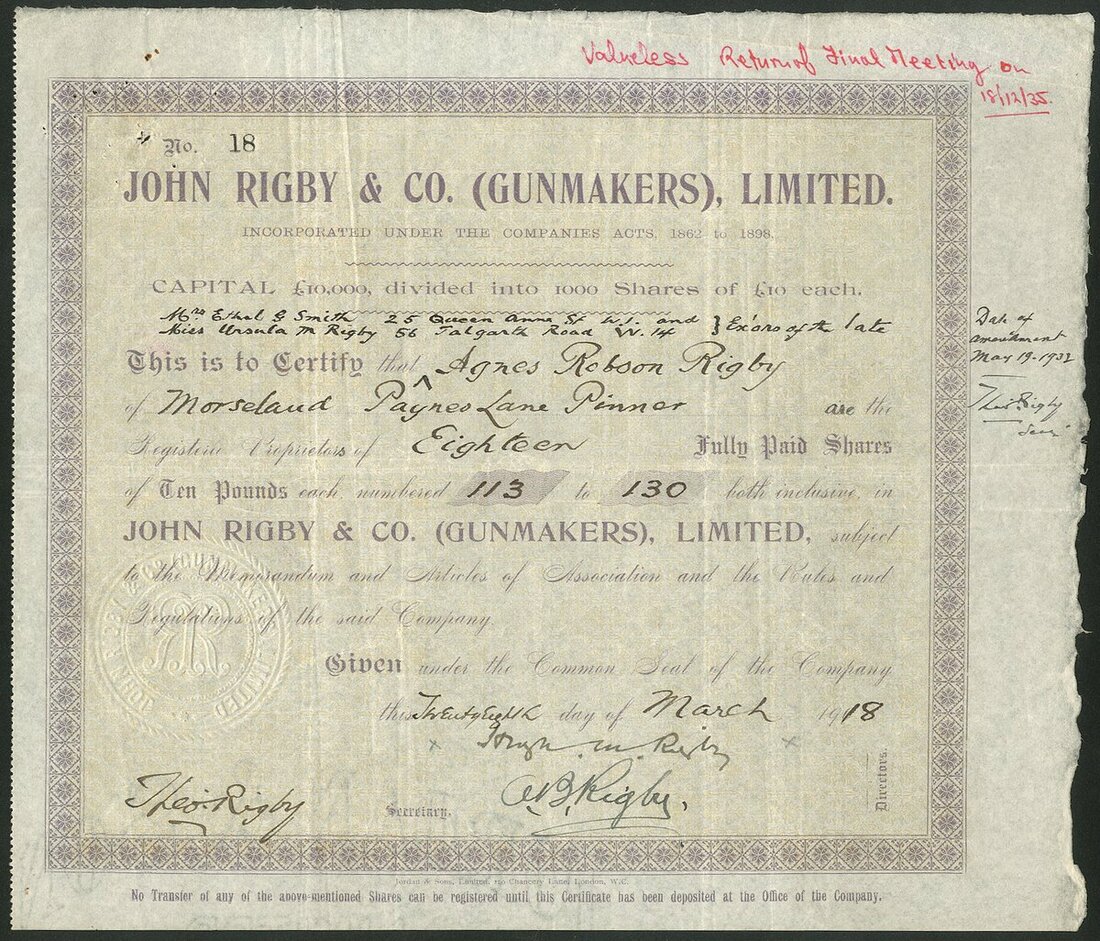 Valueless Return of Final Meeting on
18/12/35.
No. 18
JOHN RIGBY & CO. (GUNMAKERS), LIMITED.
INCORPORATED UNDER THE COMPANIES ACTS, 1862 to 1898.
CAPITAL £10,000, divided into 1000 Shares of £10 each.
Mrs Ethel G Smith 25 Queen Anne St W.1. and } Exors of the late
Miss Ursula M Rigby 56 Talgarth Road W.14
This is to Certify that Agnes Robson Rigby
of Morseland Paynes Lane Pinner are the
Registered Proprietors of Eighteen Fully Paid Shares
of Ten Pounds each, numbered 113 to 130 both inclusive, in
JOHN RIGBY & CO. (GUNMAKERS), LIMITED, subject
to the Memorandum and Articles of Association and the Rules and
Regulations of the said Company.
Given under the Common Seal of the Company
this Twenty Eighth day of March 1918
Hugh M Rigby
A B Rigby.
Directors.
Theo. Rigby
Secretary.
Date of
amendment
May 19-1932
Theo. Rigby
Secy
JOHN RIGBY & CO (GUNMAKERS) LIMITED
Jordan & Sons, Limited, 116 Chancery Lane, London, W.C.
No Transfer of any of the above-mentioned Shares can be registered until this Certificate has been deposited at the Office of the Company.